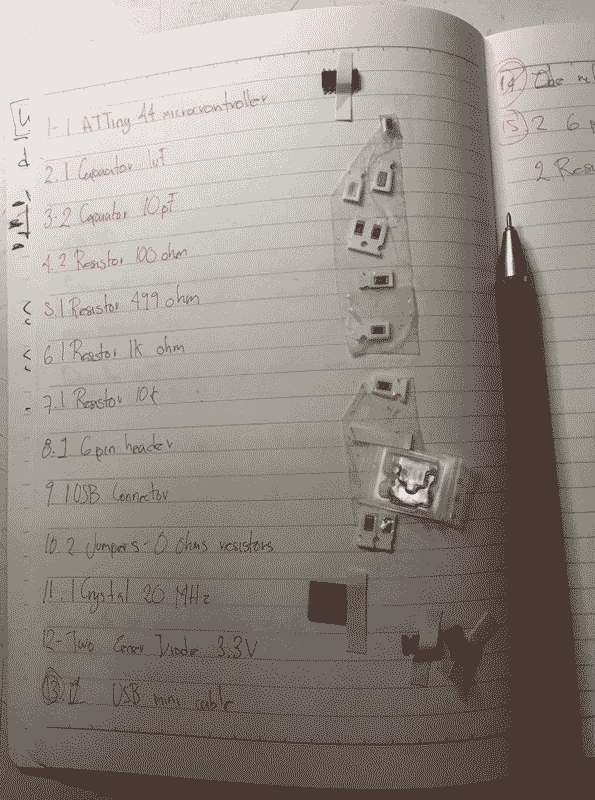 1-1 ATTiny 44 microcontroller
2.1 Capacitor 1uF
3.2 Capacitor 10pF
4.2 Resistor 100 ohm
5.1 Resistor 499 ohm
6.1 Resistor 1k ohm
7.1 Resistor 10k
8.1 6 pin header
9.1 USB Connector
10.2 Jumpers-0 ohms resistors
11.1 Crystal 20 MHz
12-Two Zener Diode 3.3V
13. 1 USB mini cable
14
15 2 6
2